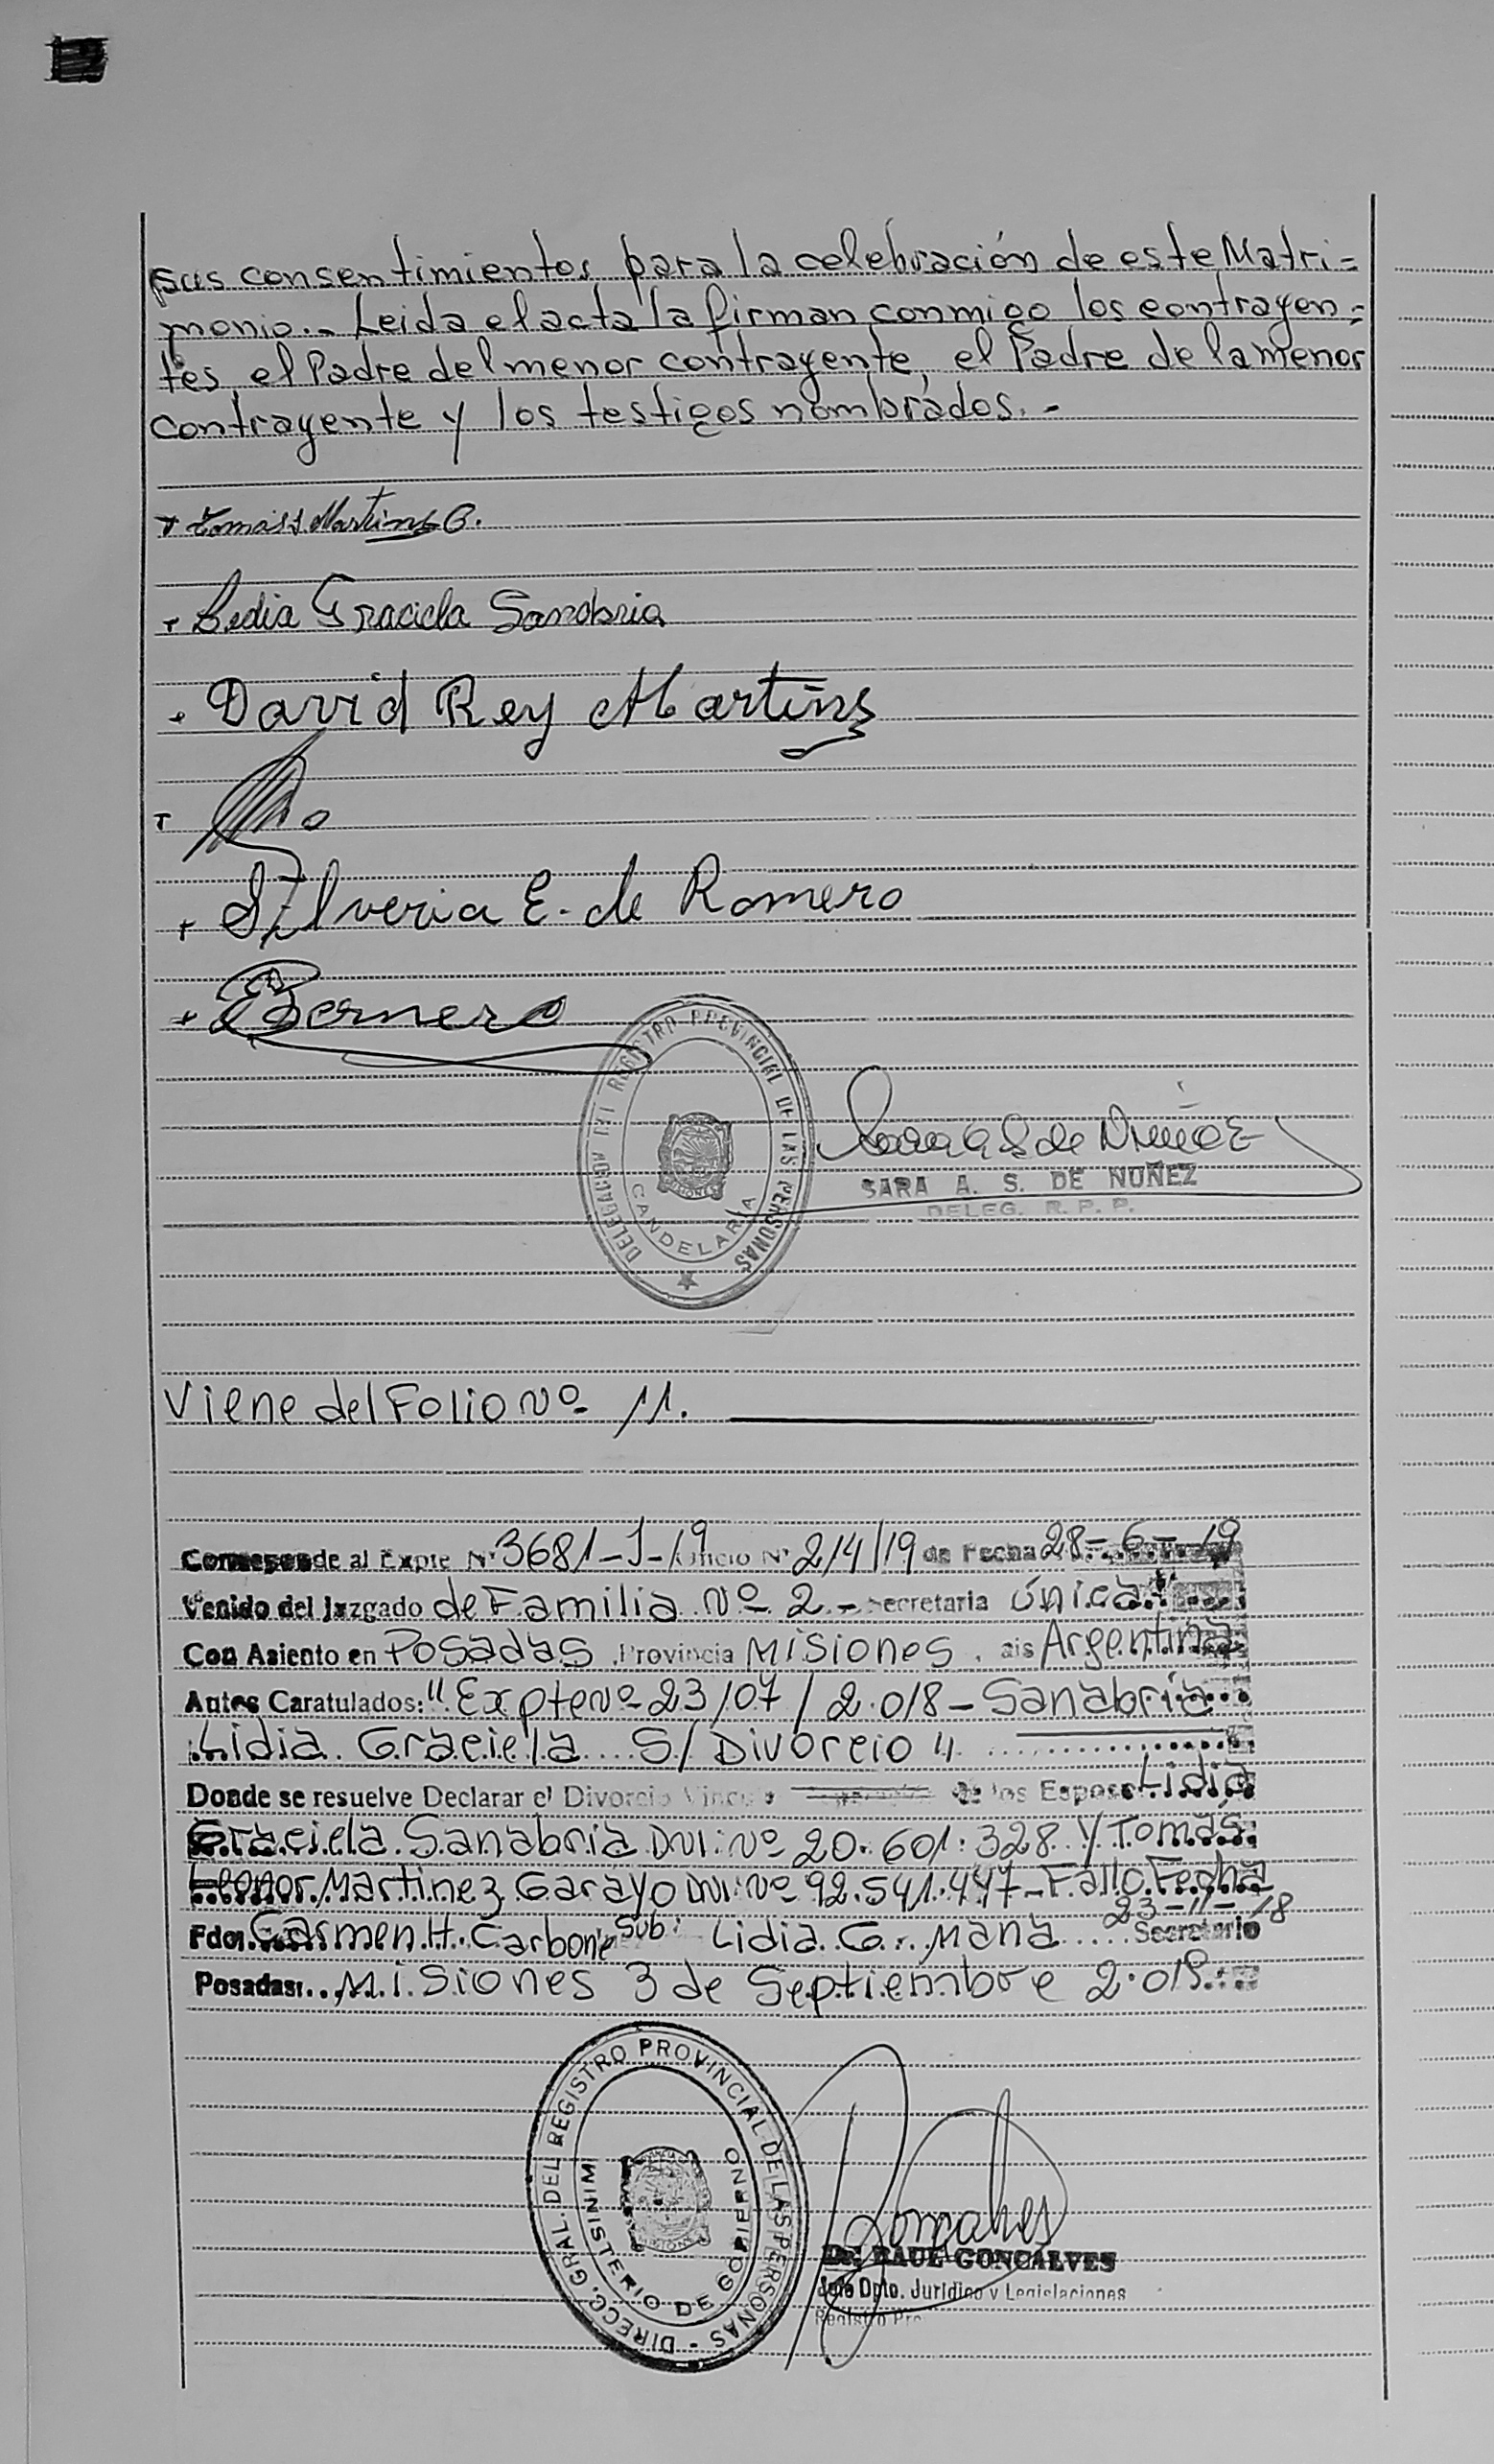 12
sus consentimientos para la celebración de este Matri=
monio.- Leida el acta la firman conmigo los contrayen=
tes, el Padre del menor contrayente, el Padre de la menor
contrayente y los testigos nombrados.-
David Rey Martins
Silveria E. de Romero
Bernero
DELEGACION DEL REGISTRO PROVINCIAL DE LAS PERSONAS
CANDELARIA
SARA A. S. DE NUÑEZ
DELEG. R. P. P.
Viene del Folio Nº 11.
Corresponde al Expte Nº 3681-J-19 Oficio Nº 214/19 de Fecha 28-6-19
Venido del Juzgado de Familia Nº 2.- Secretaria Única
Con Asiento en Posadas, Provincia Misiones, ais Argentina
Autos Caratulados: "Expte Nº 23107/2.018 - Sanabria
Lidia Graciela S/ Divorcio"
Donde se resuelve Declarar el Divorcio Vincula de los Esposos Lidia
Graciela Sanabria DNI: Nº 20.601.328 y Tomás
Leonor Martinez Garayo DNI: Nº 92.541.447 - Fallo Fecha
23-11-18
Fdo: Carmen H. Carbone Sub: Lidia G. Mana Secretario
Posadas: Misiones 3 de Septiembre 2.019
DIRECC. GRAL. DEL REGISTRO PROVINCIAL DE LAS PERSONAS
MINISTERIO DE GOBIERNO
Dr. RAUL GONCALVES
Jefe Dpto. Juridico y Legislaciones